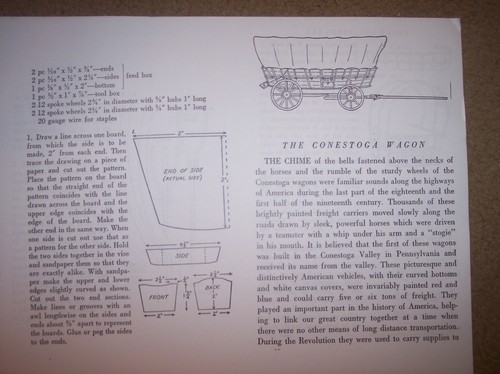 2 pc 1/16" x 1/2" x 3/4"—ends
2 pc 1/16" x 1/2" x 2 1/4"—sides feed box
1 pc x 1/2" x 2"—bottom
1 pc 1/2" x 1" x 7/8"—tool box
2 12 spoke wheels 2 3/4" in diameter with 5/8" hubs 1" long
2 12 spoke wheels in diameter with hubs 1" long
20 gauge wire for staples
1. Draw a line across one board,
from which the side is to be
made, 2" from each end. Then
trace the drawing on a piece of
paper and cut out the pattern.
Place the pattern on the board
so that the straight end of the
pattern coincides with the line
drawn across the board and the
upper edge coincides with the
edge of the board. Make the
other end in the same way. When
one side is cut out use that as
a pattern for the other side. Hold
the two sides together in the vise
and sandpaper them so that they
are exactly alike. With sandpa-
per make the upper and lower
edges slightly curved as shown.
Cut out the two end sections.
Make lines or grooves with an
awl lengthwise on the sides and
ends about apart to represent
the boards. Glue or peg the sides
to the ends.
1.
2"
END OF SIDE
(ACTUAL SIZE)
SIDE
FRONT
BACK
2"
2"
THE CONESTOGA WAGON
THE CHIME of the bells fastened above the necks of
the horses and the rumble of the sturdy wheels of the
Conestoga wagons were familiar sounds along the highways
of America during the last part of the eighteenth and the
first half of the nineteenth century. Thousands of these
brightly painted freight carriers moved slowly along the
roads drawn by sleek, powerful horses which were driven
by a teamster with a whip under his arm and a "stogie"
in his mouth. It is believed that the first of these wagons
was built in the Conestoga Valley in Pennsylvania and
received its name from the valley. These picturesque and
distinctively American vehicles, with their curved bottoms
and white canvas covers, were invariably painted red and
blue and could carry five or six tons of freight. They
played an important part in the history of America, help-
ing to link our great country together at a time when
there were no other means of long distance transportation.
During the Revolution they were used to carry supplies to